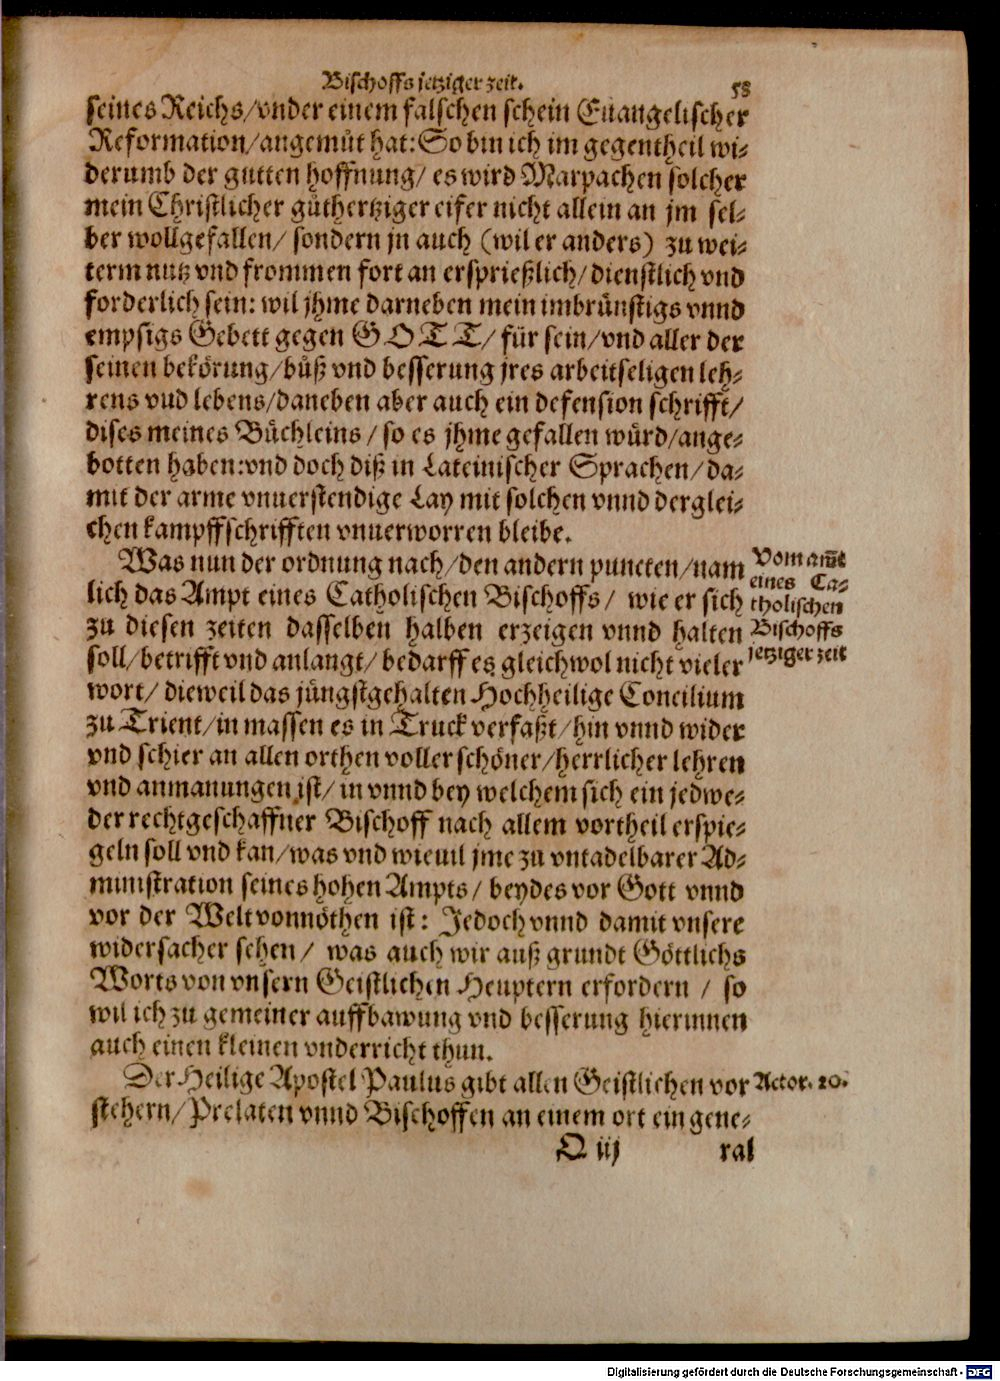 Bischoffs jetziger zeit. 58
seines Reichs/vnder einem falschen schein Euangelischer
Reformation/angemůt hat: So bin ich im gegentheil wi-
derumb der gutten hoffnung/ es wird Marpachen solcher
mein Christlicher gůthertziger eifer nicht allein an jm sel-
ber wollgefallen/ sondern jn auch (wil er anders) zu wei-
term nutz vnd frommen fort an ersprießlich/dienstlich vnd
forderlich sein: wil jhme darneben mein imbrünstigs vnnd
empsigs Gebett gegen GOTT/ für sein/vnd aller der
seinen bekörung/bůß vnd besserung jres arbeitseligen leh-
rens vud lebens/daneben aber auch ein defension schrifft/
dises meines Büchleins/so es jhme gefallen würd/ange-
botten haben: vnd doch diß in Lateinischer Sprachen/da-
mit der arme vnuerstendige Lay mit solchen vnnd derglei-
chen kampffschrifften vnuerworren bleibe.
Was nun der ordnung nach/den andern puncten/nam
lich das Ampt eines Catholischen Bischoffs/ wie er sich
zu diesen zeiten dasselben halben erzeigen vnnd halten
soll/betrifft vnd anlangt/bedarff es gleichwol nicht vieler
wort/ dieweil das jüngstgehalten Hochheilige Concilium
zu Trient/in massen es in Truck verfaßt/hin vnnd wider
vnd schier an allen orthen voller schöner/herrlicher lehren
vnd anmanungen ist/in vnnd bey welchem sich ein jedwe-
der rechtgeschaffner Bischoff nach allem vortheil erspie-
geln soll vnd kan/was vnd wieuil jme zu vntadelbarer Ad-
ministration seines hohen Ampts/ beydes vor Gott vnnd
vor der Welt vonnöthen ist: Jedoch vnnd damit vnsere
widersacher sehen/ was auch wir auß grundt Göttlichs
Worts von vnsern Geistlichen Heuptern erfordern / so
wil ich zu gemeiner auffbawung vnd besserung hierinnen
auch einen kleinen vnderricht thun.
Vom am̃t
eines Ca-
tholischen
Bischoffs
jetziger zeit
Der Heilige Apostel Paulus gibt allen Geistlichen vor
stehern/Prelaten vnnd Bischoffen an einem ort ein gene-
Actor. 20.
Q iij ral
Digitalisierung gefördert durch die Deutsche Forschungsgemeinschaft - DFG